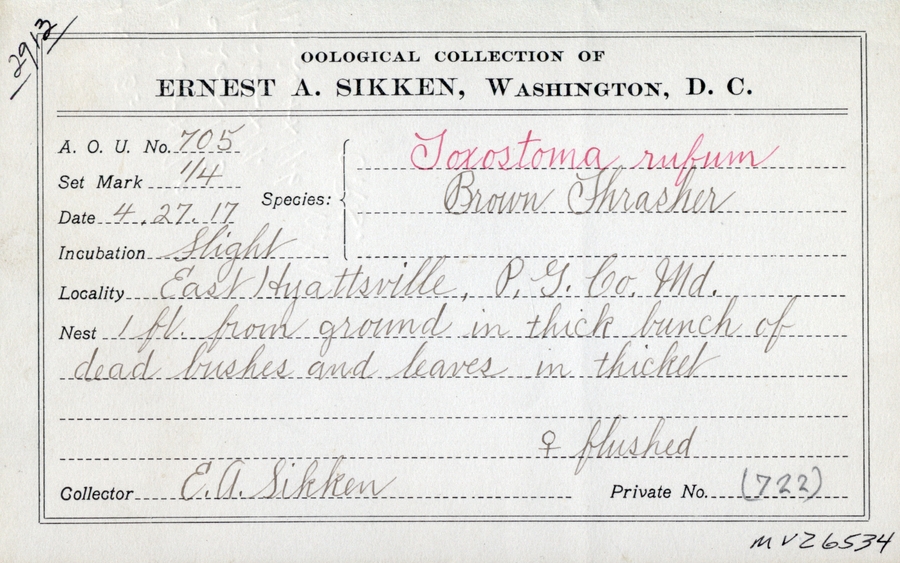 2913
OOLOGICAL COLLECTION OF
ERNEST A. SIKKEN, WASHINGTON, D. C.
A. O. U. No. 705
Set Mark 1/4
Date 4.27.17
Species: Toxostoma rufum
Brown Thrasher
Incubation Slight
Locality East Hyattsville, P. G. Co. Md.
Nest 1 ft. from ground in thick bunch of
dead bushes and leaves in thicket
♀ flushed
Collector E. A. Sikken
Private No. (722)
MVZ6534